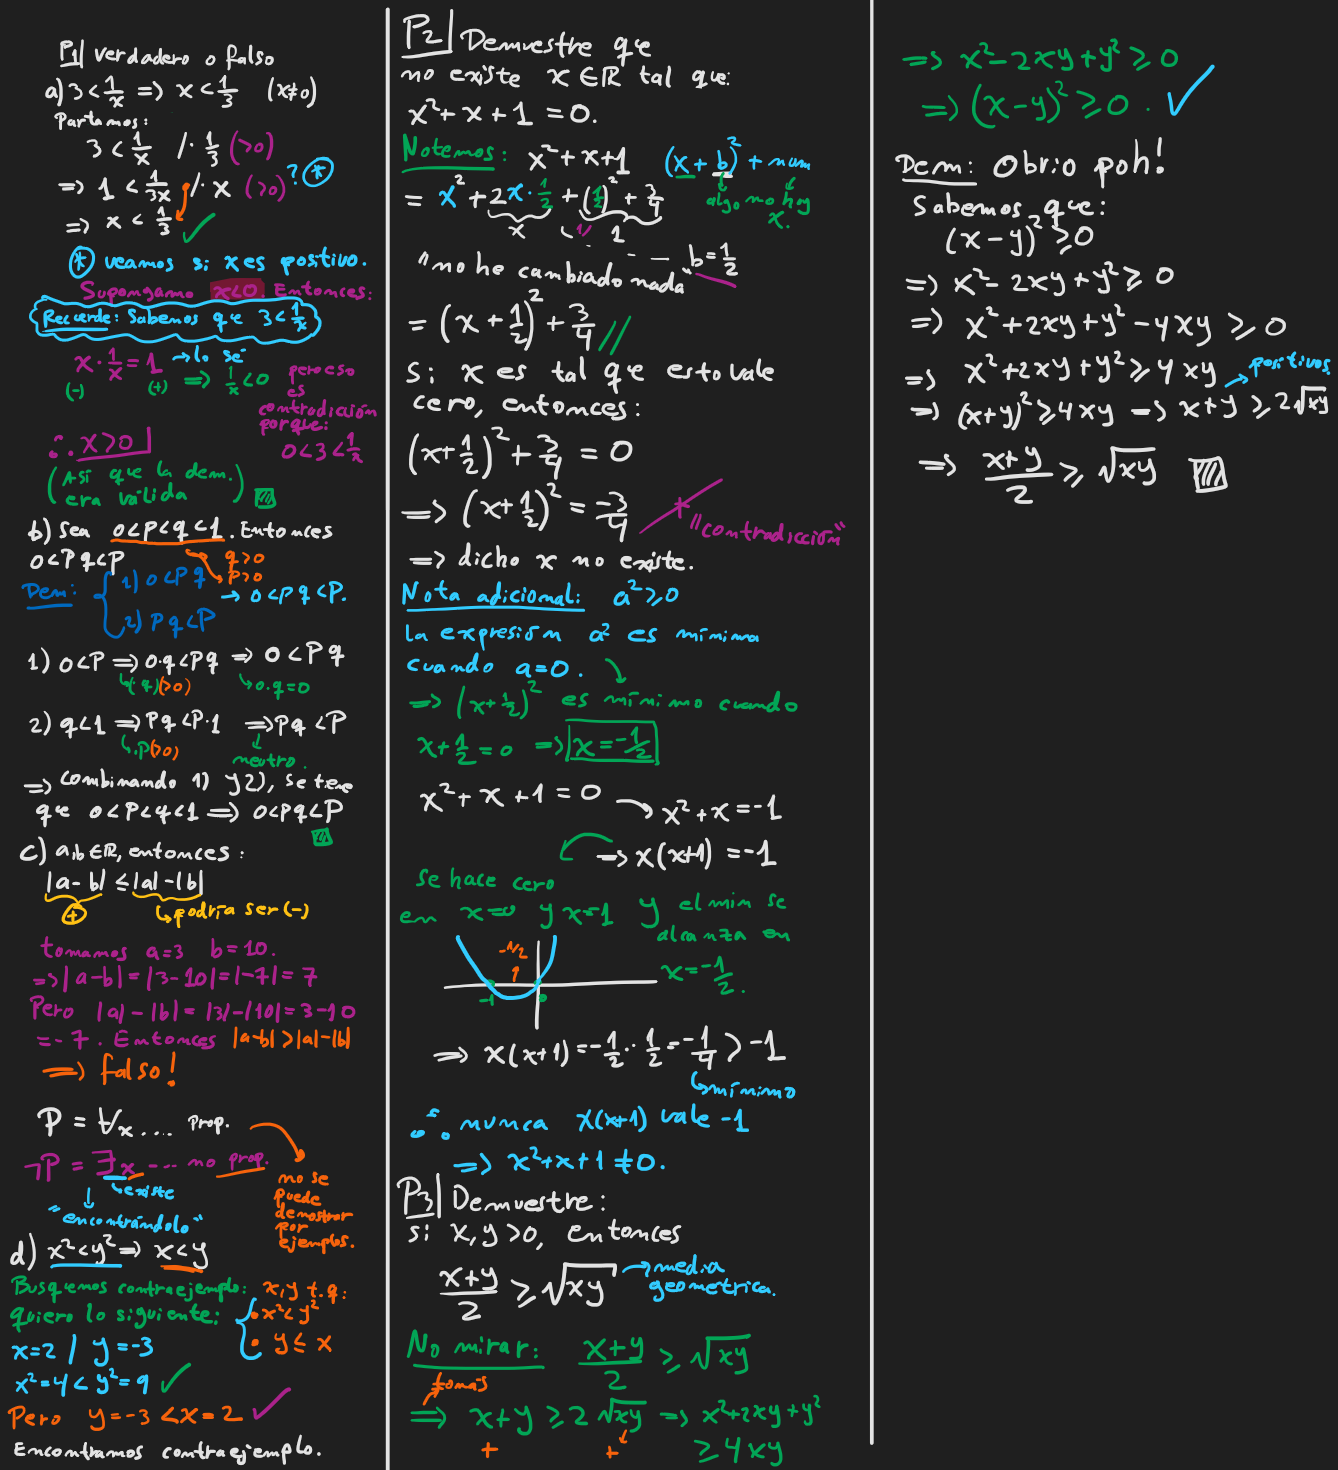 P1| Verdadero o falso
a) 3 < 1/x => x < 1/3 (x≠0)
Partamos:
3 < 1/x /· 1/3 (>0)
=> 1 < 1/3x /· x (>0)? *
=> x < 1/3 ✓
* veamos si x es positivo.
Supongamo x<0. Entonces:
Recuerde: Sabemos que 3 < 1/x
x · 1/x = 1 → lo sé
(-) (+) => 1/x < 0
pero eso
es
contradicción
porque:
0<3<1/x
∴ x>0
(Así que la dem.
era válida)
b) Sea 0<p<q<1. Entonces
0<pq<p
q>0
p>0
Dem: { 1) 0<pq
2) pq<p
→ 0<pq<p.
1) 0<p => 0·q<pq => 0<pq
(·q)(>0) 0·q=0
2) q<1 => pq<p·1 => pq<p
·p(>0) neutro.
=> Combinando 1) y 2), se tiene
que 0<p<q<1 => 0<pq<p
c) a,b∈ℝ, entonces:
|a-b| ≤ |a|-|b|
+ podría ser (-)
tomamos a=3 b=10.
=> |a-b| = |3-10| = |-7| = 7
Pero |a|-|b| = |3|-|10| = 3-10
= -7. Entonces |a-b| > |a|-|b|
=> falso!
P = ∀x.... Prop.
¬P = ∃x --- no prop.
existe
"encontrándolo"
no se
puede
demostrar
por
ejemplos.
d) x²<y² => x<y
Busquemos contraejemplo: x,y t.q:
quiero lo siguiente: { • x²<y²
• y≤x
x=2 / y=-3
x²=4 < y²=9 ✓
Pero y=-3 < x=2 ✓
Encontramos contraejemplo.
P2| Demuestre que
no existe x∈ℝ tal que:
x²+x+1 = 0.
Notemos: x²+x+1 (x+b)² + num
= x² + 2x·1/2 + (1/2)² + 3/4
algo no hay
x.
x 1
b=1/2
"no he cambiado nada"
= (x+1/2)² + 3/4 //
Si x es tal que esto vale
cero, entonces:
(x+1/2)² + 3/4 = 0
=> (x+1/2)² = -3/4
"contradicción"
=> dicho x no existe.
Nota adicional: a²≥0
La expresión a² es mínima
cuando a=0.
=> (x+1/2)² es mínimo cuando
x+1/2 = 0 => x=-1/2
x²+x+1=0 → x²+x=-1
=> x(x+1) = -1
Se hace cero
en x=0 y x=-1 y el min se
alcanza en
x=-1/2.
-1/2
-1 0
=> x(x+1) = -1/2 · 1/2 = -1/4 > -1
mínimo
∴ nunca x(x+1) vale -1
=> x²+x+1≠0.
P3| Demuestre:
si x,y>0, entonces
x+y/2 ≥ √xy → media
geometrica.
No mirar: x+y/2 ≥ √xy
=> x+y ≥ 2√xy => x²+2xy+y²
+ + ≥ 4xy
=> x²-2xy+y² ≥ 0
=> (x-y)² ≥ 0. ✓
Dem: Obvio poh!
Sabemos que:
(x-y)² ≥ 0
=> x²-2xy+y² ≥ 0
=> x²+2xy+y²-4xy ≥ 0
=> x²+2xy+y² ≥ 4xy → positivos
=> (x+y)² ≥ 4xy => x+y ≥ 2√xy
=> x+y/2 ≥ √xy